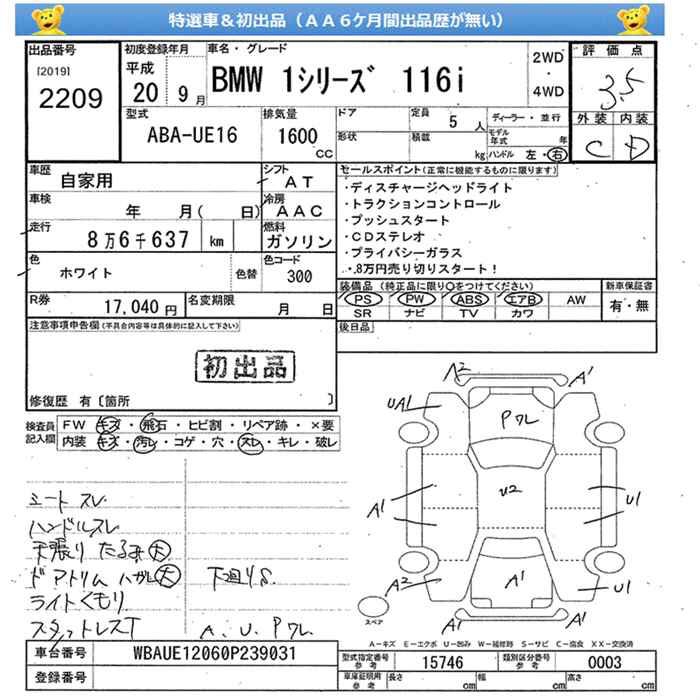 特選車＆初出品（ＡＡ６ケ月間出品歴が無い）
出品番号
[2019]
2209
初度登録年月
平成
20 9 月
車名・グレード
BMW 1シリーズ 116i
2WD
・
4WD
評価点
3.5
外装 内装
C D
型式
ABA-UE16
排気量
1600
CC
ドア
形状
定員
5 人
積載
kg
ディーラー・並行
モデル年式 年
ハンドル 左・右
車歴
自家用
シフト
AT
車検
年 月( 日)
冷房
AAC
走行
8万6千637 km
燃料
ガソリン
色
ホワイト
色替
色コード
300
R券
17,040 円
名変期限
月 日
セールスポイント(正常に機能するものに限ります)
・ディスチャージヘッドライト
・トラクションコントロール
・プッシュスタート
・CDステレオ
・プライバシーガラス
・.8万円売り切りスタート！
装備品(純正品に限り○をつけてください)
PS PW ABS エアB AW
SR ナビ TV カワ
新車保証書
有・無
後日品
注意事項申告欄(不具合内容等は具体的に記入して下さい)
初出品
修復歴 有〔箇所 〕
検査員記入欄
FW キズ・飛石・ヒビ割・リペア跡・×要
内装 キズ・汚レ・コゲ・穴・スレ・キレ・破レ
シートスレ
ハンドルスレ
天張りたるみ大
ドアトリムハガレ大
ライトくもり
スタットレスT
下廻りS
A、U、Pワレ
A2 A1
UA1
Pワレ
U2
A1
U1
A2
A1
U1
A1
スペア
A−キズ E−エクボ U−凹み W−補修跡 S−サビ C−腐食 XX−交換済
車台番号
WBAUE12060P239031
登録番号
型式指定番号
参考
15746
類別区分番号
参考
0003
車庫証明用
参考
長さ cm
幅 cm
高さ cm